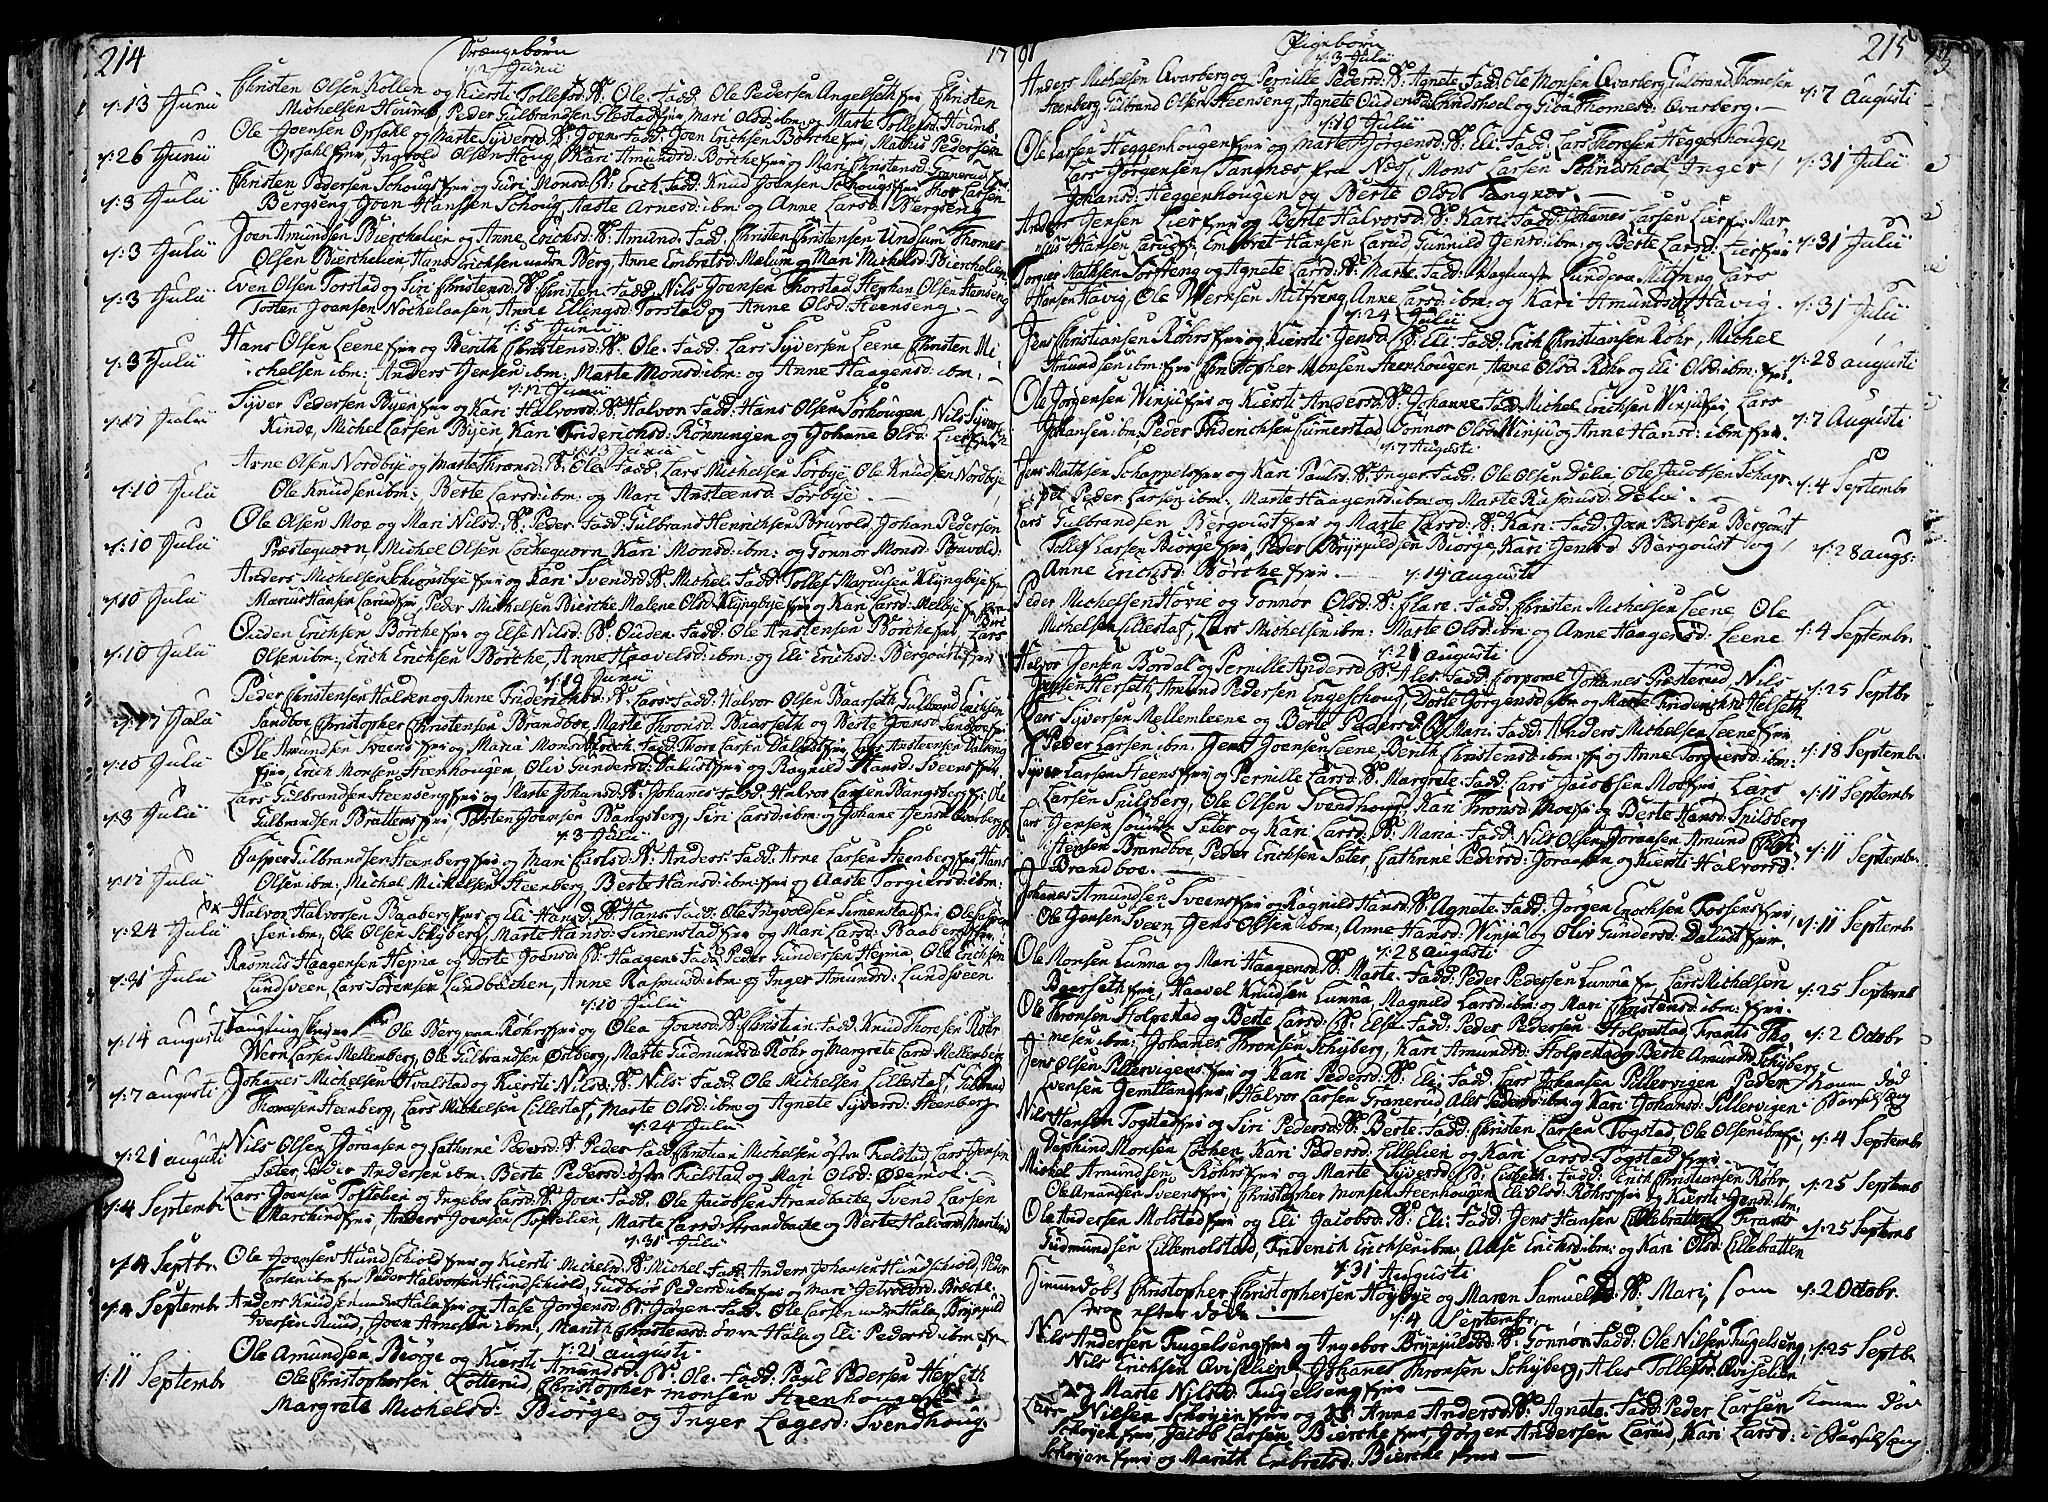 214 Drængebørn 17
7:2 Junii
7:13 Junii Christen Olsen Kollen og Kiersti Tollefsd: B: Ole. Fadd: Ole Pedersen Angelseth fri Christen
Michelsen Houmb, Peder Gulbrandsen Glestad fri Mari Olsd: ibm: og Marte Tollefsd: Houmb
7:26 Junii Ole Joensen Opsahl og Marte Syversd: B: Joen. Fadd: Joen Erichsen Børche fri Mathis Pedersen
Opsahl fri, Ingvold Olsen Houg, Kari Amundsd: Børche fri og Mari Christensd:
7:3 Julii Christen Pedersen Schougs fri og Guri Monsd: B: Erich. Fadd: Knud Joensen Schougs fri Thor Larsen
Bergseng Joen Hansen Schoug, Aaste Arnesd: ibm: og Anne Larsd: Bergseng
7:3 Julii Joen Amundsen Bierchelien og Anne Erichsd: B: Amund. Fadd: Christen Christensen Undlum Thomes
Olsen Bierchelien, Hans Erichsen under Berg, Anne Embretsd: Mælum og Mari Michelsd: Bierchelien
7:3 Julii Even Olsen Torstad og Siri Christensd: B: Christen. Fadd: Nils Joensen Thorstad Stephan Olsen Heenseng
Tosten Joensen Nochelaasen, Anne Ellingsd: Torstad og Anne Olsd: Heenseng.
7:5 Junii
7:3 Julii Hans Olsen Leene fri og Berith Christensd: B: Ole. Fadd: Lars Syversen Leene Christen Mi-
chelsen ibm: Anders Jensen ibm: Marte Monsd: ibm: og Anne Haagensd: ibm:
7:12 Junii
7:17 Julii Syver Pedersen Byen fri og Kari Halvorsd: B: Halvor. Fadd: Hans Olsen Sørhougen, Nils Syversen
Kinde, Michel Larsen Byen, Kari Friderichsd: Rønningen og Johanne Olsd: Lier fri
7:13 Junii
7:10 Julii Arne Olsen Nordbye og Marte Thronsd: B: Ole. Fadd: Lars Michelsen Sørbye, Ole Knudsen Nordbye
Ole Knudsen ibm: Berte Larsd: ibm: og Mari Ansteensd: Sørbye
7:10 Julii Ole Olsen Moe og Mari Nilsd: B: Peder. Fadd: Gulbrand Henrichsen Bruvold Johan Pedersen
Præstequærn, Michel Olsen Lochequærn, Kari Monsd: ibm: og Gonnor Monsd: Bruvold:
7:10 Julii Anders Michelsen Schiønsbye fri og Kari Svendsd: B: Michel. Fadd: Tollef Marcusen Klyngbye fri
Marcus Hansen Larud fri Peder Michelsen Bierche Malene Olsd: Klyngbye fri og Kari Larsd: Melbye fri
7:10 Julii Ouden Erichsen Børche fri og Else Nilsd: B: Ouden. Fadd: Ole Anstensen Børche fri Lars
Olsen ibm: Erich Erichsen Børche, Anne Haavelsd: ibm: og Eli Erichsd: Bergoust fri
7:19 Junii
7:17 Julii Peder Christensen Halsen og Anne Friderichsd: B: Lars. Fadd: Halvor Olsen Baarseth, Gulbrand Erichsen
Sandboe, Christopher Christensen Brandboe, Marte Thronsd: Baarseth og Berte Joensd: Sandboe
7:10 Julii Ole Amundsen Sveens fri og Maria Monsd: Erich. Fadd: Thore Larsen Dalust fri, Lars Ansteensen
fri, Erich Monsen Heenhougen, Oliv Gundersd: Dalust fri og Ragnild Hansd: Sveens fri
7:3 Julii Lars Gulbrandsen Heenseng fri og Marte Johansd: B: Johanes. Fadd: Halvor Larsen Bangsberg fri Ole
Gulbrandsen Brattens fri Torsten Joensen Bangsberg, Siri Larsd: ibm: og Johane Jensd: Qvarberg
7:3 Julii
7:17 Julii Casper Gulbrandsen Heenberg fri og Mari Carlsd: B: Anders. Fadd: Arne Larsen Heenberg fri Hans
Olsen ibm: Michel Michelsen Heenberg, Berte Hansd: ibm: fri og Aaste Torgiersd: ibm:
7:24 Julii Halvor Halvorsen Baaberg fri og Eli Hansd: B: Hans. Fadd: Ole Ingvoldsen Simenstad fri Ole
sen ibm: Ole Olsen Schyberg, Marte Hansd: Simenstad fri og Mari Larsd: Baaberg fri
7:31 Julii Rasmus Haagensen Hejma og Dorte Joensd: B: Haagen. Fadd: Peder Gundersen Hejma, Ole Erichsen
Lundsveen, Lars Sørensen Lundbechen, Anne Rasmusd: ibm: og Inger Amundsd: Lundsveen
7:10 Julii
7:14 augusti Ole Berg paa Røhrs fri og Olea Joensd: B: Christian. Fadd: Knud Thoresen Røhr
Wern Larsen Mellemberg, Ole Gulbrandsen Østberg, Marte Gudmundsd: Røhr og Margrete Larsd: Mellemberg
7:7 augusti Johanes Michelsen Hvalstad og Kiersti Nilsd: B: Nils. Fadd: Ole Michelsen Lillestaf, Gulbrand
Thomesen Heenberg, Lars Mickelsen Lillestaf, Marte Olsd: ibm: og Agnete Syversd: Heenberg
7:24 Julii
7:21 augusti Nils Olsen Joraasen og Cathrine Pedersd: B: Peder. Fadd: Christian Michelsen Fielstad Lars Jensen
Seter, Peder Andersen ibm: Berte Pedersd: Fielstad og Mari Olsd: Ødamoe
7:4 Septembr Lars Joensen Toftelien og Ingebor Larsd: B: Joen. Fadd: Ole Jacobsen Strandbacke, Svend Larsen
Marchind fri, Anders Joensen Toftelien, Marte Larsd: Strandbacke og Berte Halvorsd: Marchind
7:31 Julii
7:4 Septbr Ole Joensen Hundschiold fri og Kiersti Michelsd: B: Michel. Fadd: Anders Johansen Hundschiold, Peder
Larsen ibm: fri Peder Halvorsen Hundschiold, Gudbiør Pedersd: ibm: fri og Mari Bierche
7:4 Septembr Anders Knudsen under Hala fri og Aase Jørgensd: B: Jørgen. Fadd: Ole Larsen under Hala Brynjuld
Iversen Ruud, Joen Arnesen ibm: Marith Christensd: Hala og Eli Pedersd: ibm: fri
7:21 augusti
7:11 Septembr Ole Amundsen Biørge og Kiersti Amundsd: B: Ole. Fadd: Paul Pedersen Herseth
Ole Christophersen Lotterud, Christopher Monsen Heenhougen
Margrete Michelsd: Biørge og Inger Lagesd: Svendhoug.
91 Pigebørn 215
7:3 Julii
Anders Michelsen Qvarberg og Pernille Pedersd: B: Agnete. Fadd: Ole Monsen Qvarberg Gulbrand Thomesen 7:7 Augusti
Heenberg Gulbrand Olsen Heenseng, Agnete Oudensd: Schindshoel og Goroe Thomesd: Qvarberg.
7:10 Julii
Ole Larsen Heggenhougen fri og Marte Jørgensd: B: Eli. Fadd: Lars Thoresen Heggenhougen 7:31 Julii
Lars Jørgensen Tangnæs fra Næs, Mons Larsen Inger
Johansd: Heggenhougen og Berte Olsd: Tangnæs.
Anders Jensen Lier fri og Berte Halvorsd: B: Kari. Fadd: Johannes Larsen Lier fri Mar- 7:31 Julii
cus Hansen Larud fri, Embret Hansen Larud, Gunnild Jensd: ibm: og Berte Larsd: Lier fri
Torger Mathsen og Agnete Larsd: B: Marte. Fadd: Lars 7:31 Julii
Hansen Havig, Ole Wernsen Mitseng, Anne Larsd: ibm: og Kari Amundsd: Havig.
7:24 Julii
Jens Christiansen Røhrs fri og Kiersti Jensd: B: Eli. Fadd: Erich Christiansen Rohr, Michel 7:28 augusti
Amundsen ibm: fri Christopher Monsen Heenhougen, Anne Olsd: Røhr og Eli Olsd: ibm: fri.
Ole Jørgensen Winju fri og Kiersti Andersd: B: Johanne. Fadd: Michel Erichsen Winju fri, Lars 7:7 Augusti
Johansen ibm: Peder Friderichsen Cimmerstad Gonnor Olsd: Winju og Anne Hansd: ibm: fri.
7:7 Augusti
Jens Mathsen Schappels fri og Kari Paulsd: B: Inger. Fadd: Ole Olsen Delie Ole Jacobsen Schap- 7:4 Septembr
pel Peder Larsen ibm: Marte Haagensd: ibm: og Marte Rasmusd: Delie.
Lars Gulbrandsen Bergoust fri og Marte Larsd: B: Kari. Fadd: Joen Pedersen Bergoust
Tollef Larsen Biørge fri, Peder Brynjuldsen Biørge, Kari Jensd: Bergoust og 7:28 augs:
Anne Erichsd: Børche fri. 7:14 augusti
Peder Michelsen Hovie og Gonnor Olsd: B: Clare. Fadd: Christen Michelsen Leene, Ole
Michelsen Lillestaf, Lars Michelsen ibm: Marte Olsd: ibm: og Anne Haagensd: Leene 7:4 Septembr.
7:21 augusti
Halvor Jensen Bordal og Pernille Andersd: B: Ales. Fadd: Corporal Johanes Græsterud, Nils 7:25 Septbr
Jensen Herseth, Amund Pedersen Engeschoug, Dorte Jørgensd: ibm og Marte Friderichsd: Helseth
Lars Syversen Mellemleene og Berte Pedersd: B: Mari. Fadd: Anders Michelsen Leene fri
Peder Larsen ibm: Jens Joensen Leene, Berith Christensd: ibm: fri og Anne Torgiersd: ibm: 7:18 Septembr
Syver Larsen Heens fri og Pernille Larsd: B: Margrete. Fadd: Lars Jacobsen Moe fri, Lars 7:11 Septembr
Larsen Snilsberg, Ole Olsen Svendhoug, Kari Thronsd: Moe fri og Berte Hansd: Snilsberg
Lars Jensen Seter og Kari Larsd: B: Maria. Fadd: Nils Olsen Joraasen Amund Chri- 7:11 Septembr.
stensen Brandboe, Peder Erichsen Seter, Cathrine Pedersd: Joraasen og Kiersti Halvorsd:
Brandboe.
Johanes Amundsen Sveens fri og Ragnild Hansd: B: Agnete. Fadd: Jørgen Enochsen Fossens fri
Ole Jensen Sveen, Jens Olsen ibm: Anne Hansd: Winju og Oliv Gundersd: Dalust fri. 7:11 Septembr
7:28 augusti
Ole Monsen Lunna og Mari Haagensd: B: Marte. Fadd: Peder Pedersen Lunna fr, Lars Michelsen 7:25 Septemb
Baarseth fri, Haavel Knudsen Lunna, Magnild Larsd: ibm: og Mari Christensd: ibm: fri.
Ole Thronsen Holpestad og Berte Larsd: B: Else. Fadd: Peder Pedersen Holpestad, Frants Tho- 7:2 Octobr
mesen ibm: Johanes Thronsen Schyberg, Kari Amundsd: Holpestad og Berte Amundsd: Schyberg
Jens Olsen Pillervigens fri og Kari Pedersd: B: Eli. Fadd: Lars Johansen Pillervigen Peder Konen død
Evensen Jemtland fri, Halvor Larsen Granerud, Ales Pedersd: ibm: og Kari Johansd: Pillervigen i Barselseng
Nils Hansen Togstad fri og Siri Pedersd: B: Berte. Fadd: Christen Larsen Togstad, Ole Olsen ibm fri, 7:4 Septembr
Daphind Monsen Løcken, Kari Pedersd: Lillelien og Kari Larsd: Togstad fri.
Michel Amundsen Røhrs fri og Marte Syversd: B: Lisbeth. Fadd: Erich Christiansen Røhr,
Ole Amundsen Sveens fri, Christopher Monsen Heenhougen, Eli Olsd: Røhrs fri og Kiersti Jensd: ibm: 7:25 Septemb
Ole Andersen Molstad fri og Eli Jacobsd: B: Eli. Fadd: Jens Hansen Lillebratten, Frants 7:25 Septemb
Gudmundsen Lillemolstad, Friderich Erichsen ibm: Aase Erichsd: ibm: og Kari Olsd: Lillebratten
7:31 Augusti
Hiemmedøbt Christopher Christophersen Høybye og Maren Samuelsd: B: Mari, som 7:2 Octobr.
strax efter døde
7:4 Septembr.
Nils Andersen Fugelseng fri og Ingebor Brynjulsd: B: Gonnor. Fadd: Ole Nilsen Fugelseng, 7:25 Septbr
Nils Erichsen Qviselien, Johanes Thronsen Schyberg, Ales Tollefsd: Qviselien
og Marte Nilsd: Fugelseng fri
Lars Nielsen Schøyen fri og Anne Andersd: B: Agnete. Fadd: Peder Larsen Konen død
Schøyen fri, Jacob Larsen Bierche fri, Jørgen Andersen Larud, Kari Larsd: i Barselseng
Schøyen fri og Marith Embretsd: Bierche fri